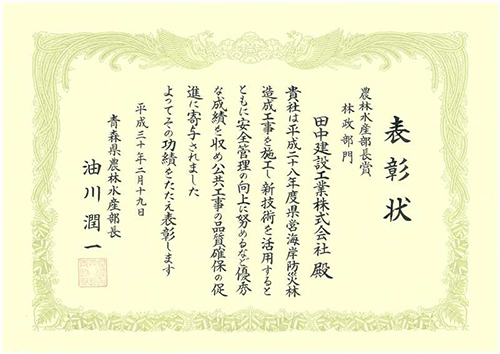 表彰状
農林水産部長賞
林政部門
田中建設工業株式会社 殿
貴社は平成二十八年度県営海岸防災林
造成工事を施工し新技術を活用すると
ともに安全管理の向上に努めるなど優秀
な成績を収め公共工事の品質確保の促
進に寄与されました
よってその功績をたたえ表彰します
平成三十年二月十九日
青森県農林水産部長
油川潤一